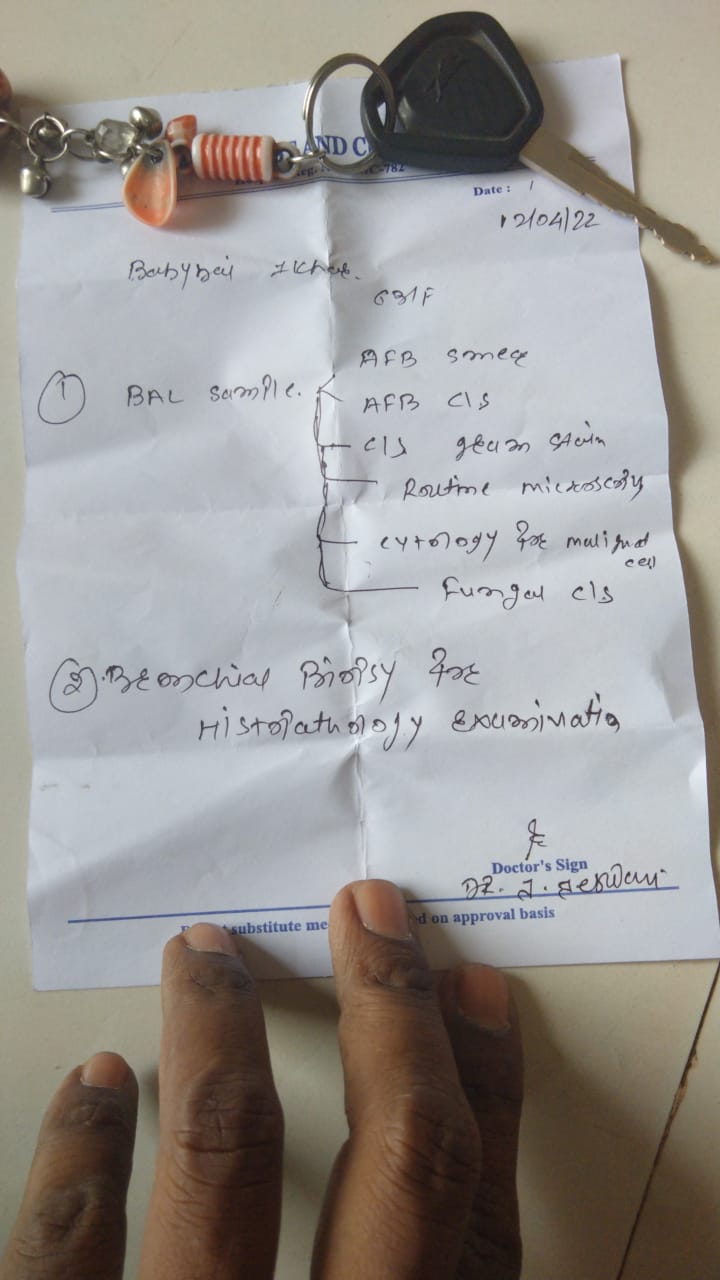 AND C
-782
Date :
12/04/22
Babybai
63/F
① BAL sample.
AFB smear
AFB C/S
C/S gram stain
Routine microscopy
cytology for malignat cell
Fungal C/S
②. Bronchial Biopsy for
Histopathology Examination
Doctor's Sign
DR. J.
substitute me d on approval basis